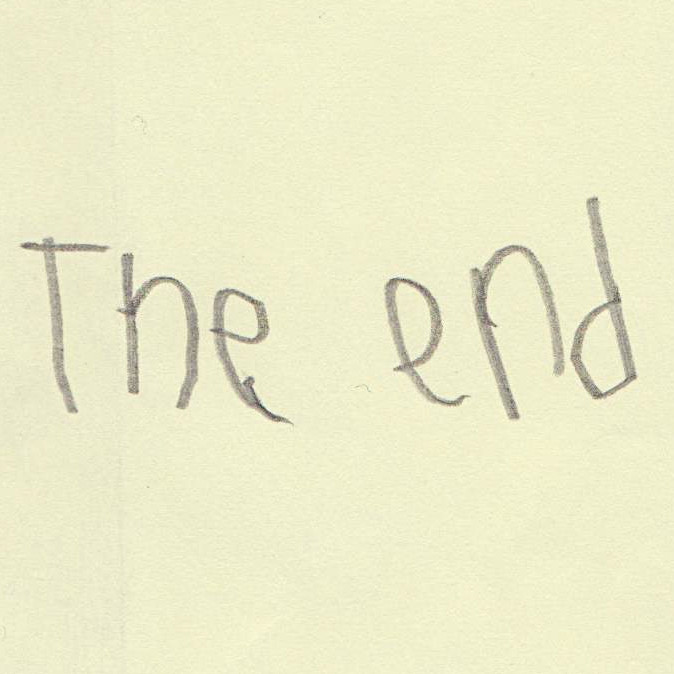 The end